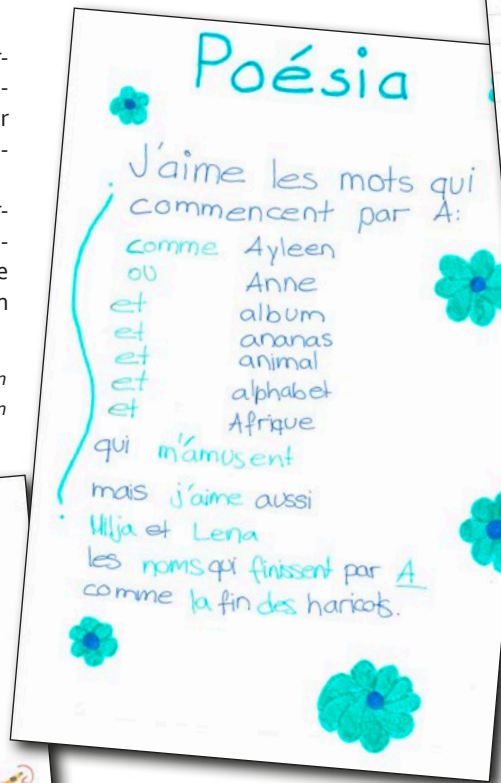 Poésia
J'aime les mots qui
commencent par A:
comme Ayleen
ou Anne
et album
et ananas
et animal
et alphabet
et Afrique
qui m'amusent
mais j'aime aussi
et Lena
les noms qui finissent par A
comme la fin des haricots.